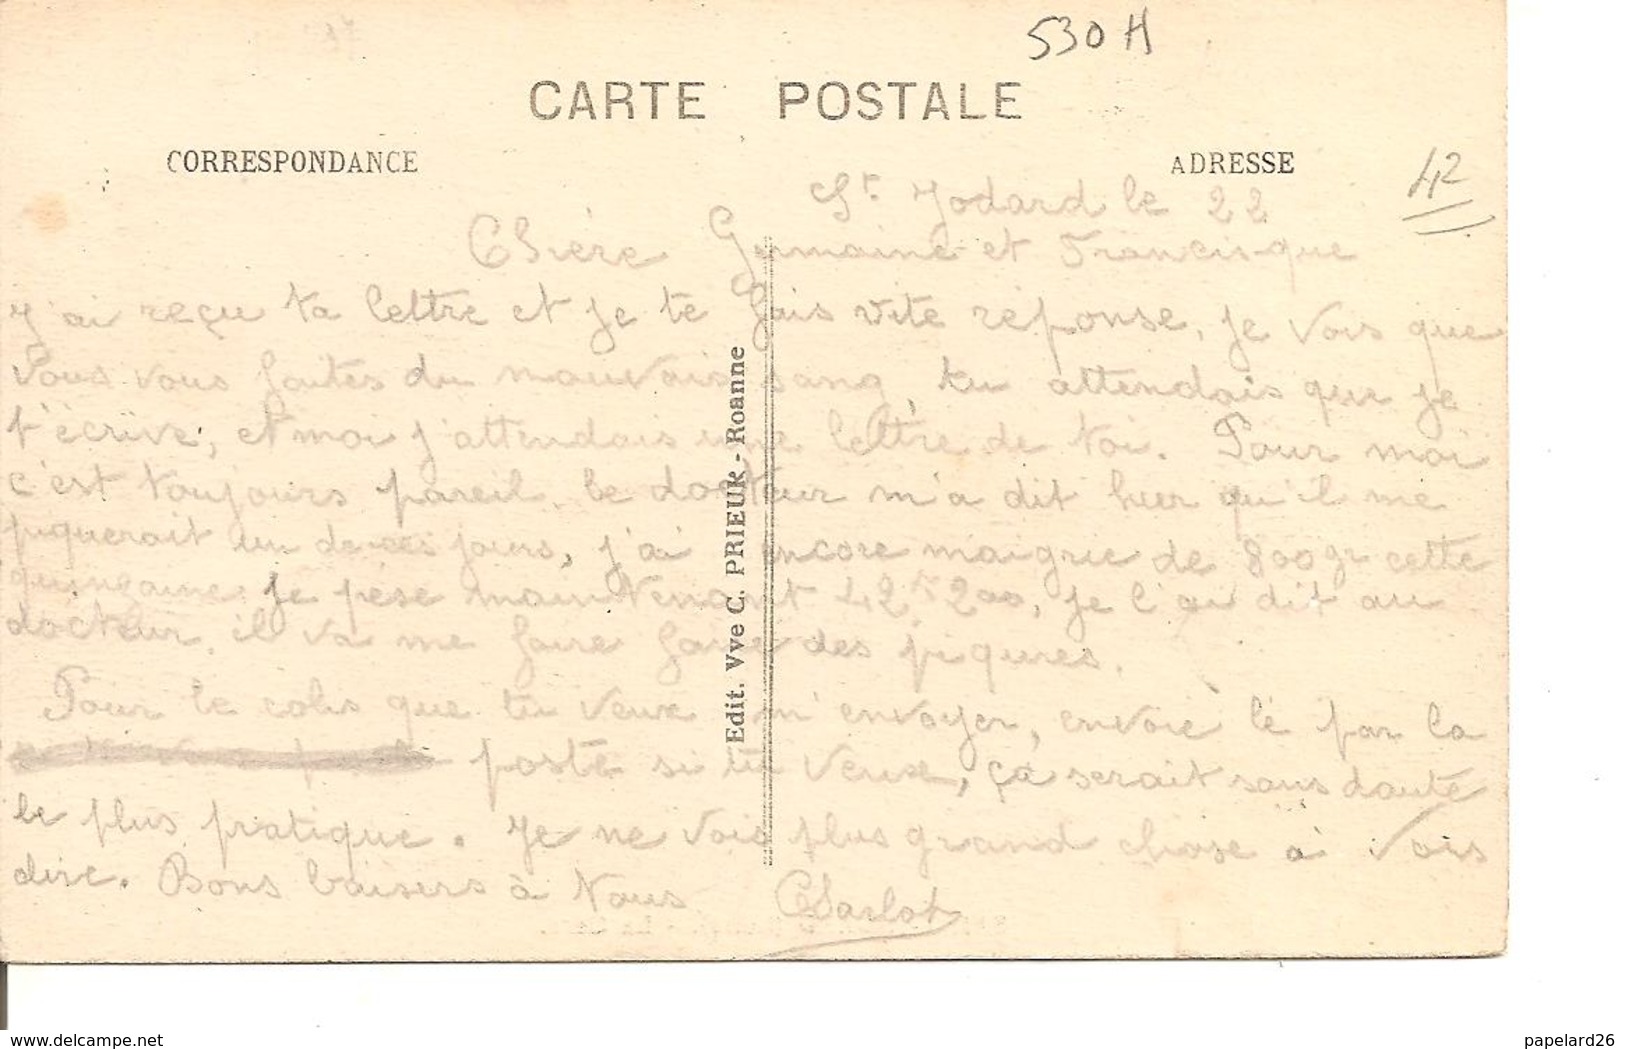 530 H
CARTE POSTALE
CORRESPONDANCE
ADRESSE
42
St Jodard le 22
Chère Germaine et Francisque
J'ai reçu ta lettre et je te fais vite réponse, je vois que
vous vous faites du mauvais sang, tu attendais que je
t'écrive, et moi j'attendais une lettre de toi. Pour moi
c'est toujours pareil, le docteur m'a dit hier qu'il me
piquerait un de ces jours, j'ai encore maigrie de 800 gr cette
quinzaine je pèse maintenant 42 200, je l'ai dit au
docteur, il va me faire faire des piqures.
Pour le colis que tu veux m'envoyer, envoie lé par la
poste si tu veux, ça serait sans doute
le plus pratique. Je ne vois plus grand chose à vois
dire. Bons baisers à tous Charlot
Edit. Vve C. PRIEUR - Roanne
www.delcampe.net
papelard26